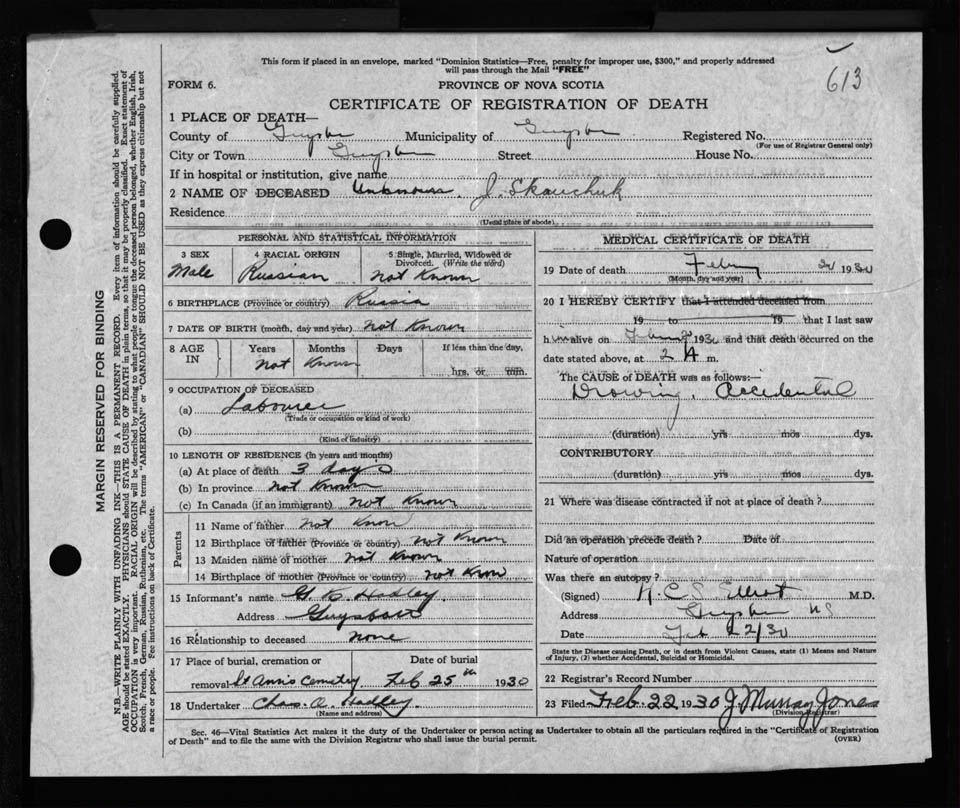 This form if placed in an envelope, marked "Dominion Statistics—Free, penalty for improper use, $300," and properly addressed
will pass through the Mail "FREE"
613
FORM 6.
PROVINCE OF NOVA SCOTIA
CERTIFICATE OF REGISTRATION OF DEATH
1 PLACE OF DEATH—
County of Guysbo Municipality of Guysbo Registered No.
(For use of Registrar General only)
City or Town Guysbo Street House No.
If in hospital or institution, give name
2 NAME OF DECEASED Unknown J. Skauchuk
Residence
(Usual place of abode)
PERSONAL AND STATISTICAL INFORMATION
3 SEX 4 RACIAL ORIGIN 5 Single, Married, Widowed or
Divorced. (Write the word)
Male Russian Not Known
6 BIRTHPLACE (Province or country) Russia
7 DATE OF BIRTH (month, day and year) Not Known
8 AGE IN Years Months Days If less than one day,
Not Known hrs. or min.
9 OCCUPATION OF DECEASED
(a) Labourer
(Trade or occupation or kind of work)
(b)
(Kind of industry)
10 LENGTH OF RESIDENCE (in years and months)
(a) At place of death 3 days
(b) In province Not Known
(c) In Canada (if an immigrant) Not Known
Parents
11 Name of father Not Know
12 Birthplace of father (Province or country) Not Known
13 Maiden name of mother Not Known
14 Birthplace of mother (Province or country) Not Know
15 Informant's name G B Hadley
Address Guysboro
16 Relationship to deceased None
17 Place of burial, cremation or Date of burial
removal St Ann's Cemetery Feb 25th 1930
18 Undertaker Chas. A. Hadley
(Name and address)
MEDICAL CERTIFICATE OF DEATH
19 Date of death Febry 1930
(Month, day and year)
20 I HEREBY CERTIFY that I attended deceased from
19 to 19 that I last saw
h alive on 1930 and that death occurred on the
date stated above, at 2 A m.
The CAUSE of DEATH was as follows:—
Drowing, Accidental
(duration) yrs mos dys.
CONTRIBUTORY
(duration) yrs mos dys.
21 Where was disease contracted if not at place of death?
Did an operation precede death? Date of
Nature of operation
Was there an autopsy?
(Signed) A. C. S. Elliot M.D.
Address Guysbo NS
Date Feb 22/30
State the Disease causing Death, or in death from Violent Causes, state (1) Means and Nature
of Injury, (2) whether Accidental, Suicidal or Homicidal.
22 Registrar's Record Number
23 Filed Feb. 22 1930 J. Murray Jones
(Division Registrar)
Sec. 46—Vital Statistics Act makes it the duty of the Undertaker or person acting as Undertaker to obtain all the particulars required in the "Certificate of Registration
of Death" and to file the same with the Division Registrar who shall issue the burial permit. (OVER)
MARGIN RESERVED FOR BINDING
N.B.—WRITE PLAINLY WITH UNFADING INK—THIS IS A PERMANENT RECORD. Every item of information should be carefully supplied.
AGE should be stated EXACTLY. PHYSICIANS should STATE CAUSE OF DEATH in plain terms, so that it may be properly classified. Exact statement of
OCCUPATION is very important. RACIAL ORIGIN will be described by stating to what people or tongue the deceased person belonged, whether English, Irish,
Scotch, French, German, Russian, Ruthenian, etc. The terms "AMERICAN" or "CANADIAN" SHOULD NOT BE USED as they express citizenship but not
a race or people. Fee instructions on back of Certificate.